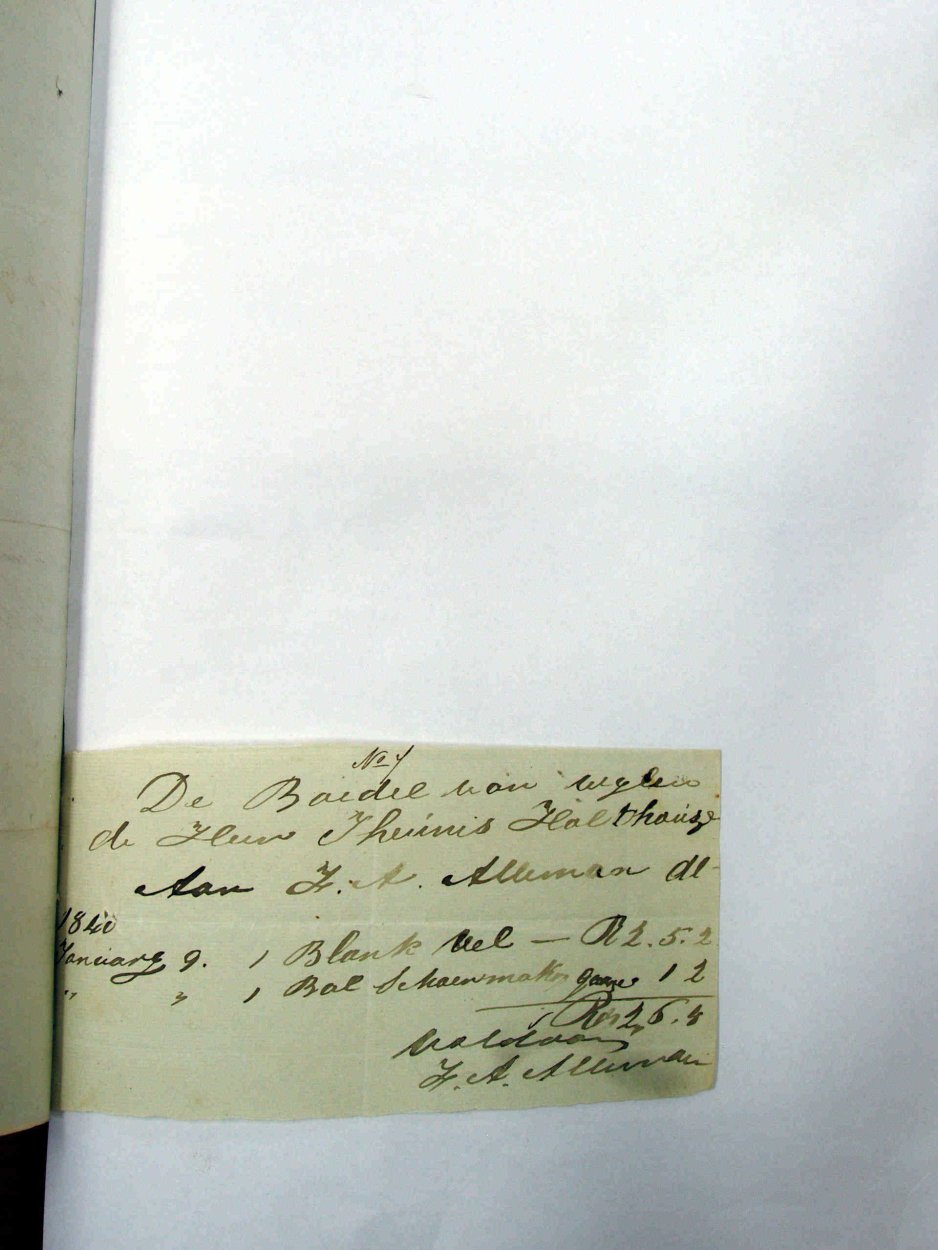 No 7
De Boedel van wylen
de Heer Theunis Holtshouse
Aan F. A. Alleman dt
1840
January 9. 1 Blank Vel — R 2. 5. 2
" " 1 Bal Schoenmakers garen 1 2
Rs 2, 6. 4
Voldaan
F. A. Alleman